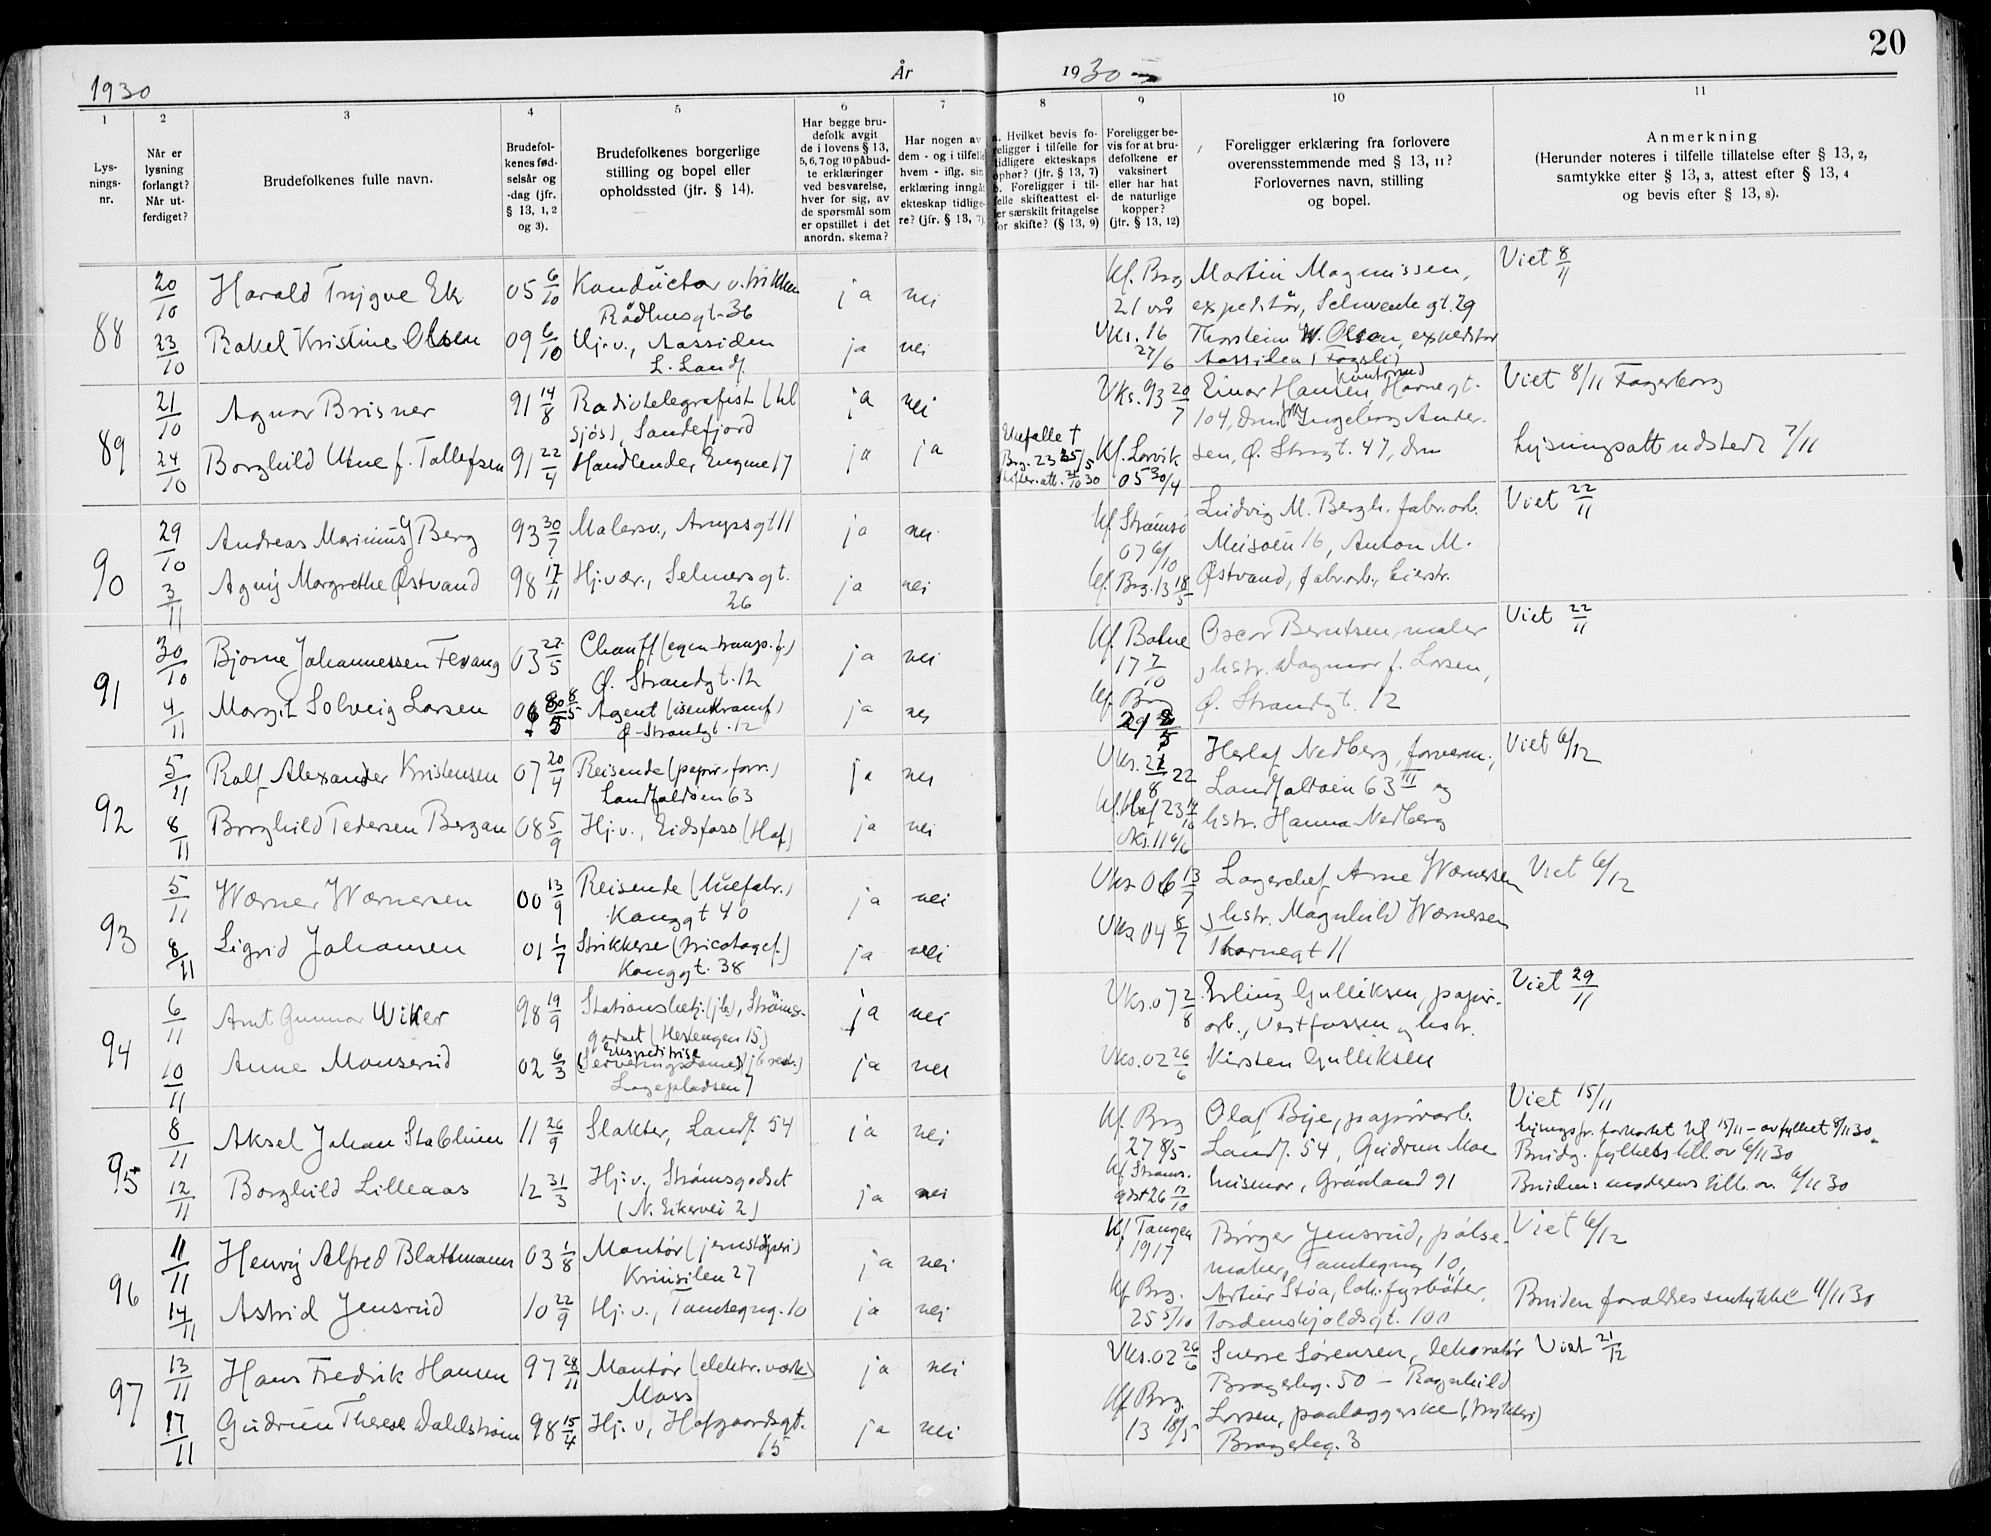 20
1930
År
1930
1
2
3
4
5
6
7
8
9
10
11
Lys-
nings-
nr.
Når er
lysning
forlangt?
Når ut-
ferdiget?
Brudefolkenes fulle navn.
Brudefol-
kenes fød-
selsår og
-dag (jfr.
§ 13, 1, 2
og 3).
Brudefolkenes borgerlige
stilling og bopel eller
opholdssted (jfr. § 14).
Har begge bru-
defolk avgit
de i lovens § 13,
5, 6, 7 og 10 påbud-
te erklæringer
ved besvarelse,
hver for sig, av
de spørsmål som
er opstillet i det
anordn. skema?
Har nogen av
dem - og i tilfelle
hvem - iflg. sin
erklæring inngått
ekteskap tidlige-
re? (jfr. § 13, 7).
a. Hvilket bevis fo-
religger i tilfelle for
tidligere ekteskaps
ophør? (jfr. § 13, 7)
b. Foreligger i til-
felle skifteattest el-
ler særskilt fritagelse
for skifte? (§ 13, 9)
Foreligger be-
vis for at bru-
defolkene er
vaksinert
eller har hat
de naturlige
kopper?
(jfr. § 13, 12)
Foreligger erklæring fra forlovere
overensstemmende med § 13, 11?
Forlovernes navn, stilling
og bopel.
Anmerkning
(Herunder noteres i tilfelle tillatelse efter § 13, 2,
samtykke efter § 13, 3, attest efter § 13, 4
og bevis efter § 13, 8).
88
20/10 Harald Trygve Ek 05 6/10 Konductør v. trikken ja nei Kf. Brg Martin Magnussen, Viet 8/11
Rådhusgt. 36 21 vår expeditør, Schwenckegt. 29
23/10 Rakel Kristine Olsen 09 6/10 Hj.v., Aassiden ja nei Vks. 16 Thorstein W. Olsen, expeditør
L. Landf. 27/6 Aassiden (Fagerli)
89
21/10 Agnar Brisner 91 14/8 Radiotelegrafist (til ja nei Vks. 93 20/7 Einar Hansen, Kontormd Havnegt. Viet 8/11 Fagerborg
sjøs), Sandefjord 104, Drm, Ingeborg Ander-
24/10 Borghild Utne f. Tollefsen 91 22/4 Handlende, Engene 17 ja ja Uefalle † Brg. 23 25/5 Skifteatt. 21/10 30 Kf. Larvik 05 30/4 sen, Ø. Strgt. 47, Drm Lysningsatt udstedt 7/11
90
29/10 Andreas Marinius Berg 93 30/7 Malersv., Amtmsgt 11 ja nei Kf. Strømsø 07 6/10 Ludvig M. Bergh. fabr.arb. Viet 22/11
Meisøen 16, Anton M.
3/11 Agny Margrethe Østvand 98 17/11 Hj.vær., Selmersgt. 26 ja nei Kf. Brg. 13 18/5 Østvand, fabr.arb., Lierstr.
91
30/10 Bjarne Johannessen Fevang 03 22/5 Chauff (egen transp.f.) ja nei Kf. Botne 17 7/10 Oscar Berntsen, maler Viet 22/11
Ø. Strandgt. 12 og hstr. Dagmar f. Larsen,
4/11 Margit Solveig Larsen 06 8/5 Agent (isenkramf.) ja nei Kf. Brg 21 8/5 Ø. Strandgt. 12
Ø. Strandgt. 12
92
5/11 Rolf Alexander Kristensen 07 20/4 Reisende (papir-forr.) ja nei Vks. 21/8 22 Herlof Nedberg, forverm., Viet 6/12
Landfaldøen 63 Landfaldøen 63 III og
8/11 Borghild Pedersen Bergan 08 5/9 Hj.v., Eidsfoss (Hof) ja nei Kf. Hof 23 14/10 hstr. Hanna Nedberg
Vks. 11 6/6
93
5/11 Werner Wernersen 00 13/9 Reisende (luefabr.) ja nei Vks 06 13/7 Lagerchef Arne Wernersen Viet 6/12
Konggt 40 og hstr. Magnhild Wernersen
8/11 Sigrid Johansen 01 1/7 Strikkerse (tricotagef.) ja nei Vks 04 8/7 Thornegt 11
Konggt. 38
94
6/11 Arnt Gunnar Wiker 98 19/9 Stationsbetj. (jb), Strøms- ja nei Vks. 07 2/8 Erling Gulliksen, papir- Viet 29/11
godset (Herlengen 15) arb., Vestfossen og hstr.
10/11 Anne Monserud 02 6/3 Expeditrise (Serveringsdame) (jb rest.) ja nei Vks. 02 26/6 Kirsten Gulliksen
Lagepladsen 7
95
8/11 Aksel Johan Stablum 11 26/9 Slakter, Landf. 54 ja nei Kf. Brg 27 8/5 Olaf Bye, papirarb. Viet 15/11
Landf. 54, Gudrun Moe Lysningsfr. forkortet til 15/11 - av fylket 8/11 30
Brudg. fylkets till. av 6/11 30
12/11 Borghild Lilleaas 12 31/3 Hj.v., Strømsgodset ja nei Kf. Strøms- gdst 26 17/10 husmor, Grønland 91 Brudens moderens till. av 6/11 30
(N. Eikervei 2)
96
11/11 Henry Alfred Blattmann 03 1/8 Montør (jernstøperi) ja nei Kf Tangen 1917 Børger Jensrud, pølse- Viet 6/12
Kniusilen 27 maker, Tamtegng 10,
14/11 Astrid Jensrud 10 22/9 Hj.v., Tomtegng. 10 ja nei Kf. Brg. 25 5/10 Artur Støa, lok.fyrbøter, Bruden forældres samtykke 11/11 30
Tordenskjoldsgt. 100
97
13/11 Hans Fredrik Hansen 97 28/11 Montør (elektr. verk) ja nei Vks. 02 26/6 Sverre Sørensen, dekoratør Viet 21/12
Moss Bragerhg. 50 - Ragnhild
17/11 Gudrun Therese Dahlstrøm 98 15/4 Hj.v, Hofgaardsgt. 15 ja nei Kf. Brg. 13 18/5 Larsen, paalæggerske (trykkeri)
Bragerhg. 3